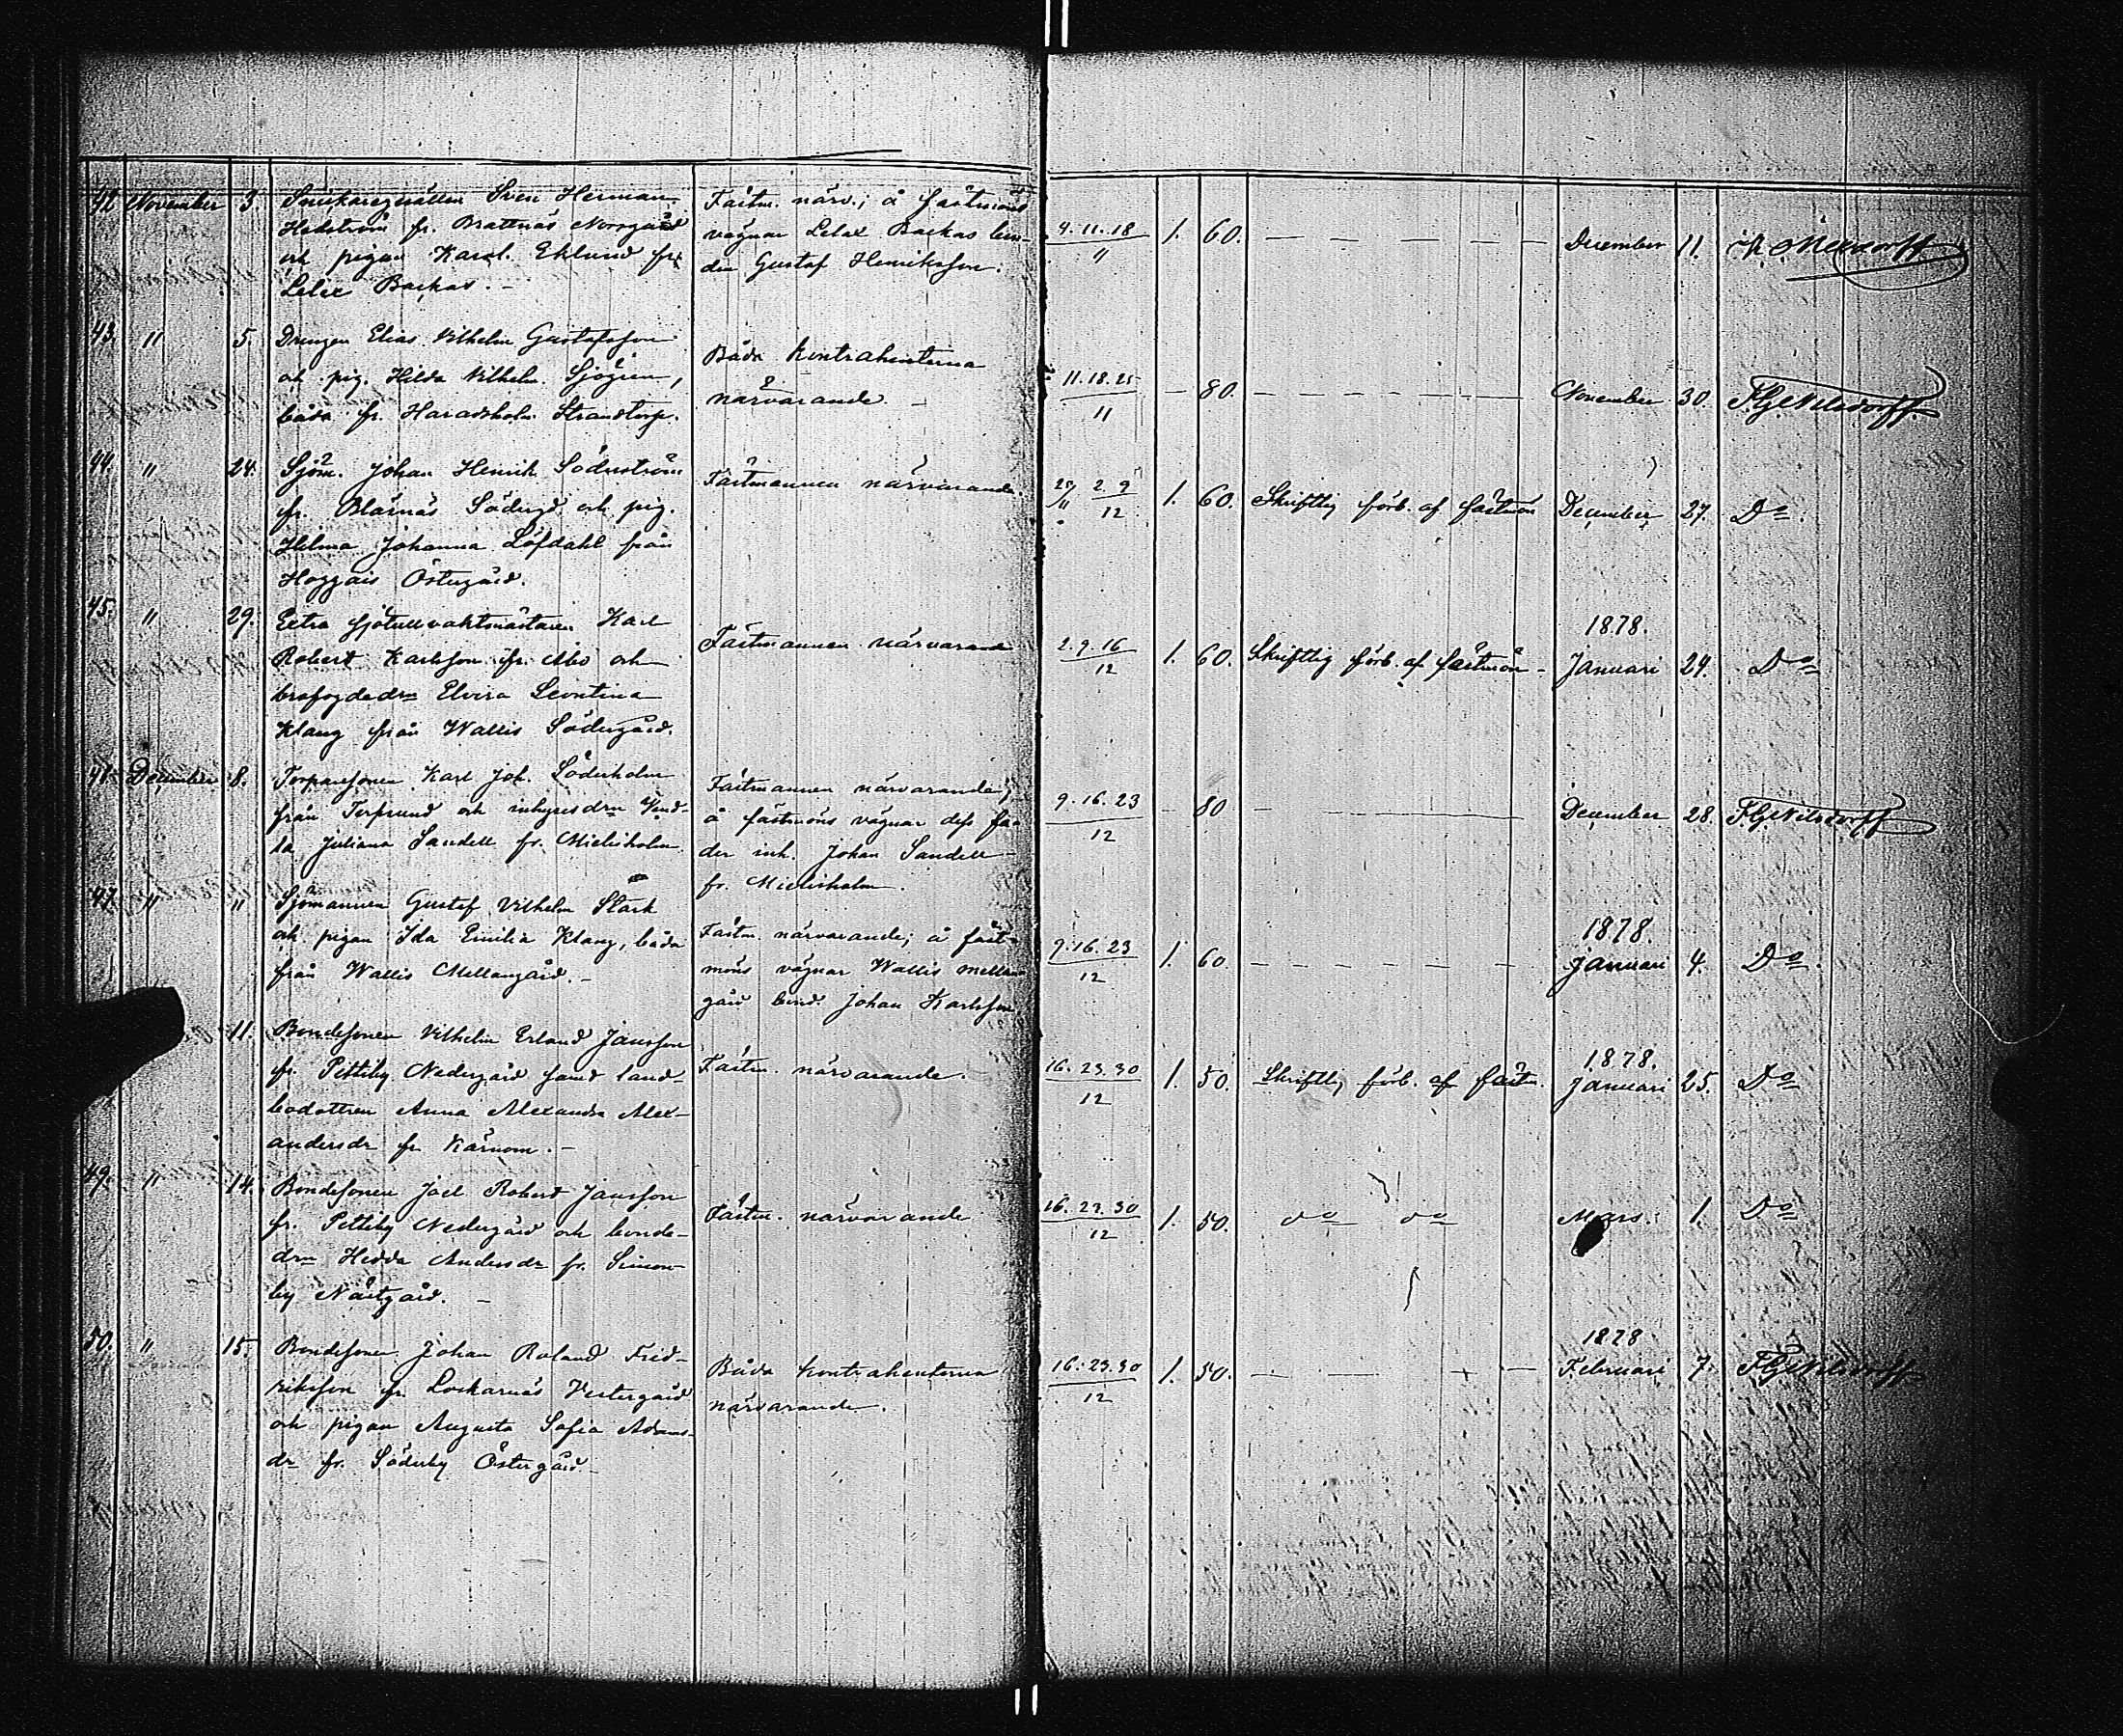 42 November 3. Snickaregesällen Sven Herman
Hedström fr. Brattnäs Norrgård
och pigan Karol. Eklund fr.
Lelax Backas. -
Fästm. närv.; å fästmöns
vägnar Lelax Backas bon-
den Gustaf Henriksson.
4. 11. 18 / 11 1. 60. — — — — — December 11.
43. " 5. Drengen Elias Vilhelm Gustafsson
och pig. Hilda Vilhelm. Sjögren,
båda fr. Haradsholm Strandtorp.
Båda kontrahenterna
närvarande -
11. 18. 25 / 11 — 80. — — — — — November 30. FGNilsdorff.
44. " 24. Sjöm. Johan Henrik Söderström
fr. Bläsnäs Södergd och pig.
Hilma Johanna Löfdahl från
Hoggais Östergård.
Fästmannen närvarande.
25/11 2. 9 / 12 1. 60. Skriftlig förb. af fästmön December 27. Do.
45. " 29. Extra sjötullvaktmästaren Karl
Robert Karlsson fr. Åbo och
brofogdedrn Elvira Leontina
Klang från Wallis Södergård.
Fästmannen närvarande
2. 9. 16 / 12 1. 60. Skriftlig förb. af fästmön -
1878.
Januari 29. Do
December 8. Torparsonen Karl Joh. Söderholm
från Terpsund och inhysesdrn Vend-
la Juliana Sandell fr. Mielisholm
Fästmannen närvarande;
å fästmöns vägnar dess fa-
der inh. Johan Sandell
fr. Mielisholm.
9. 16. 23 / 12 — 80 — — December 28. FGNilsdorff
47. " " Sjömannen Gustaf Vilhelm Stark
och pigan Ida Emilia Klang, båda
från Wallis Mellangård. -
Fästm. närvarande; å fäst-
möns vägnar Wallis Mellan
gård bond. Johan Karlsson
9. 16. 23 / 12 1. 60. — — — — — —
1878.
Januari 4. Do.
11. Bondesonen Vilhelm Erland Jansson
fr. Pettiby Nedergård samt land-
bodottren Anna Alexandra Alex-
andersdr fr. Kärnom. -
Fästm. närvarande. -
16. 23. 30 / 12 1. 50. Skriftlig förb. af fästm.
1878.
Januari 25. Do
49. " 14. Bondesonen Joel Robert Jansson
fr. Pettiby Nedergård och bonde-
drn Hedda Andersdr fr. Simon-
by Nästgård. -
Fästm. närvarande
16. 23. 30 / 12 1. 50. do do Mars. 1. Do
50. " 15. Bondesonen Johan Roland Fred-
riksson fr. Lockarnäs Vestergård
och pigan Augusta Sofia Adams-
dr fr. Söderby Östergård. -
Båda kontrahenterna
närvarande.
16. 23. 30 / 12 1. 50. — — — —
1878
Februari 7. FGNilsdorff